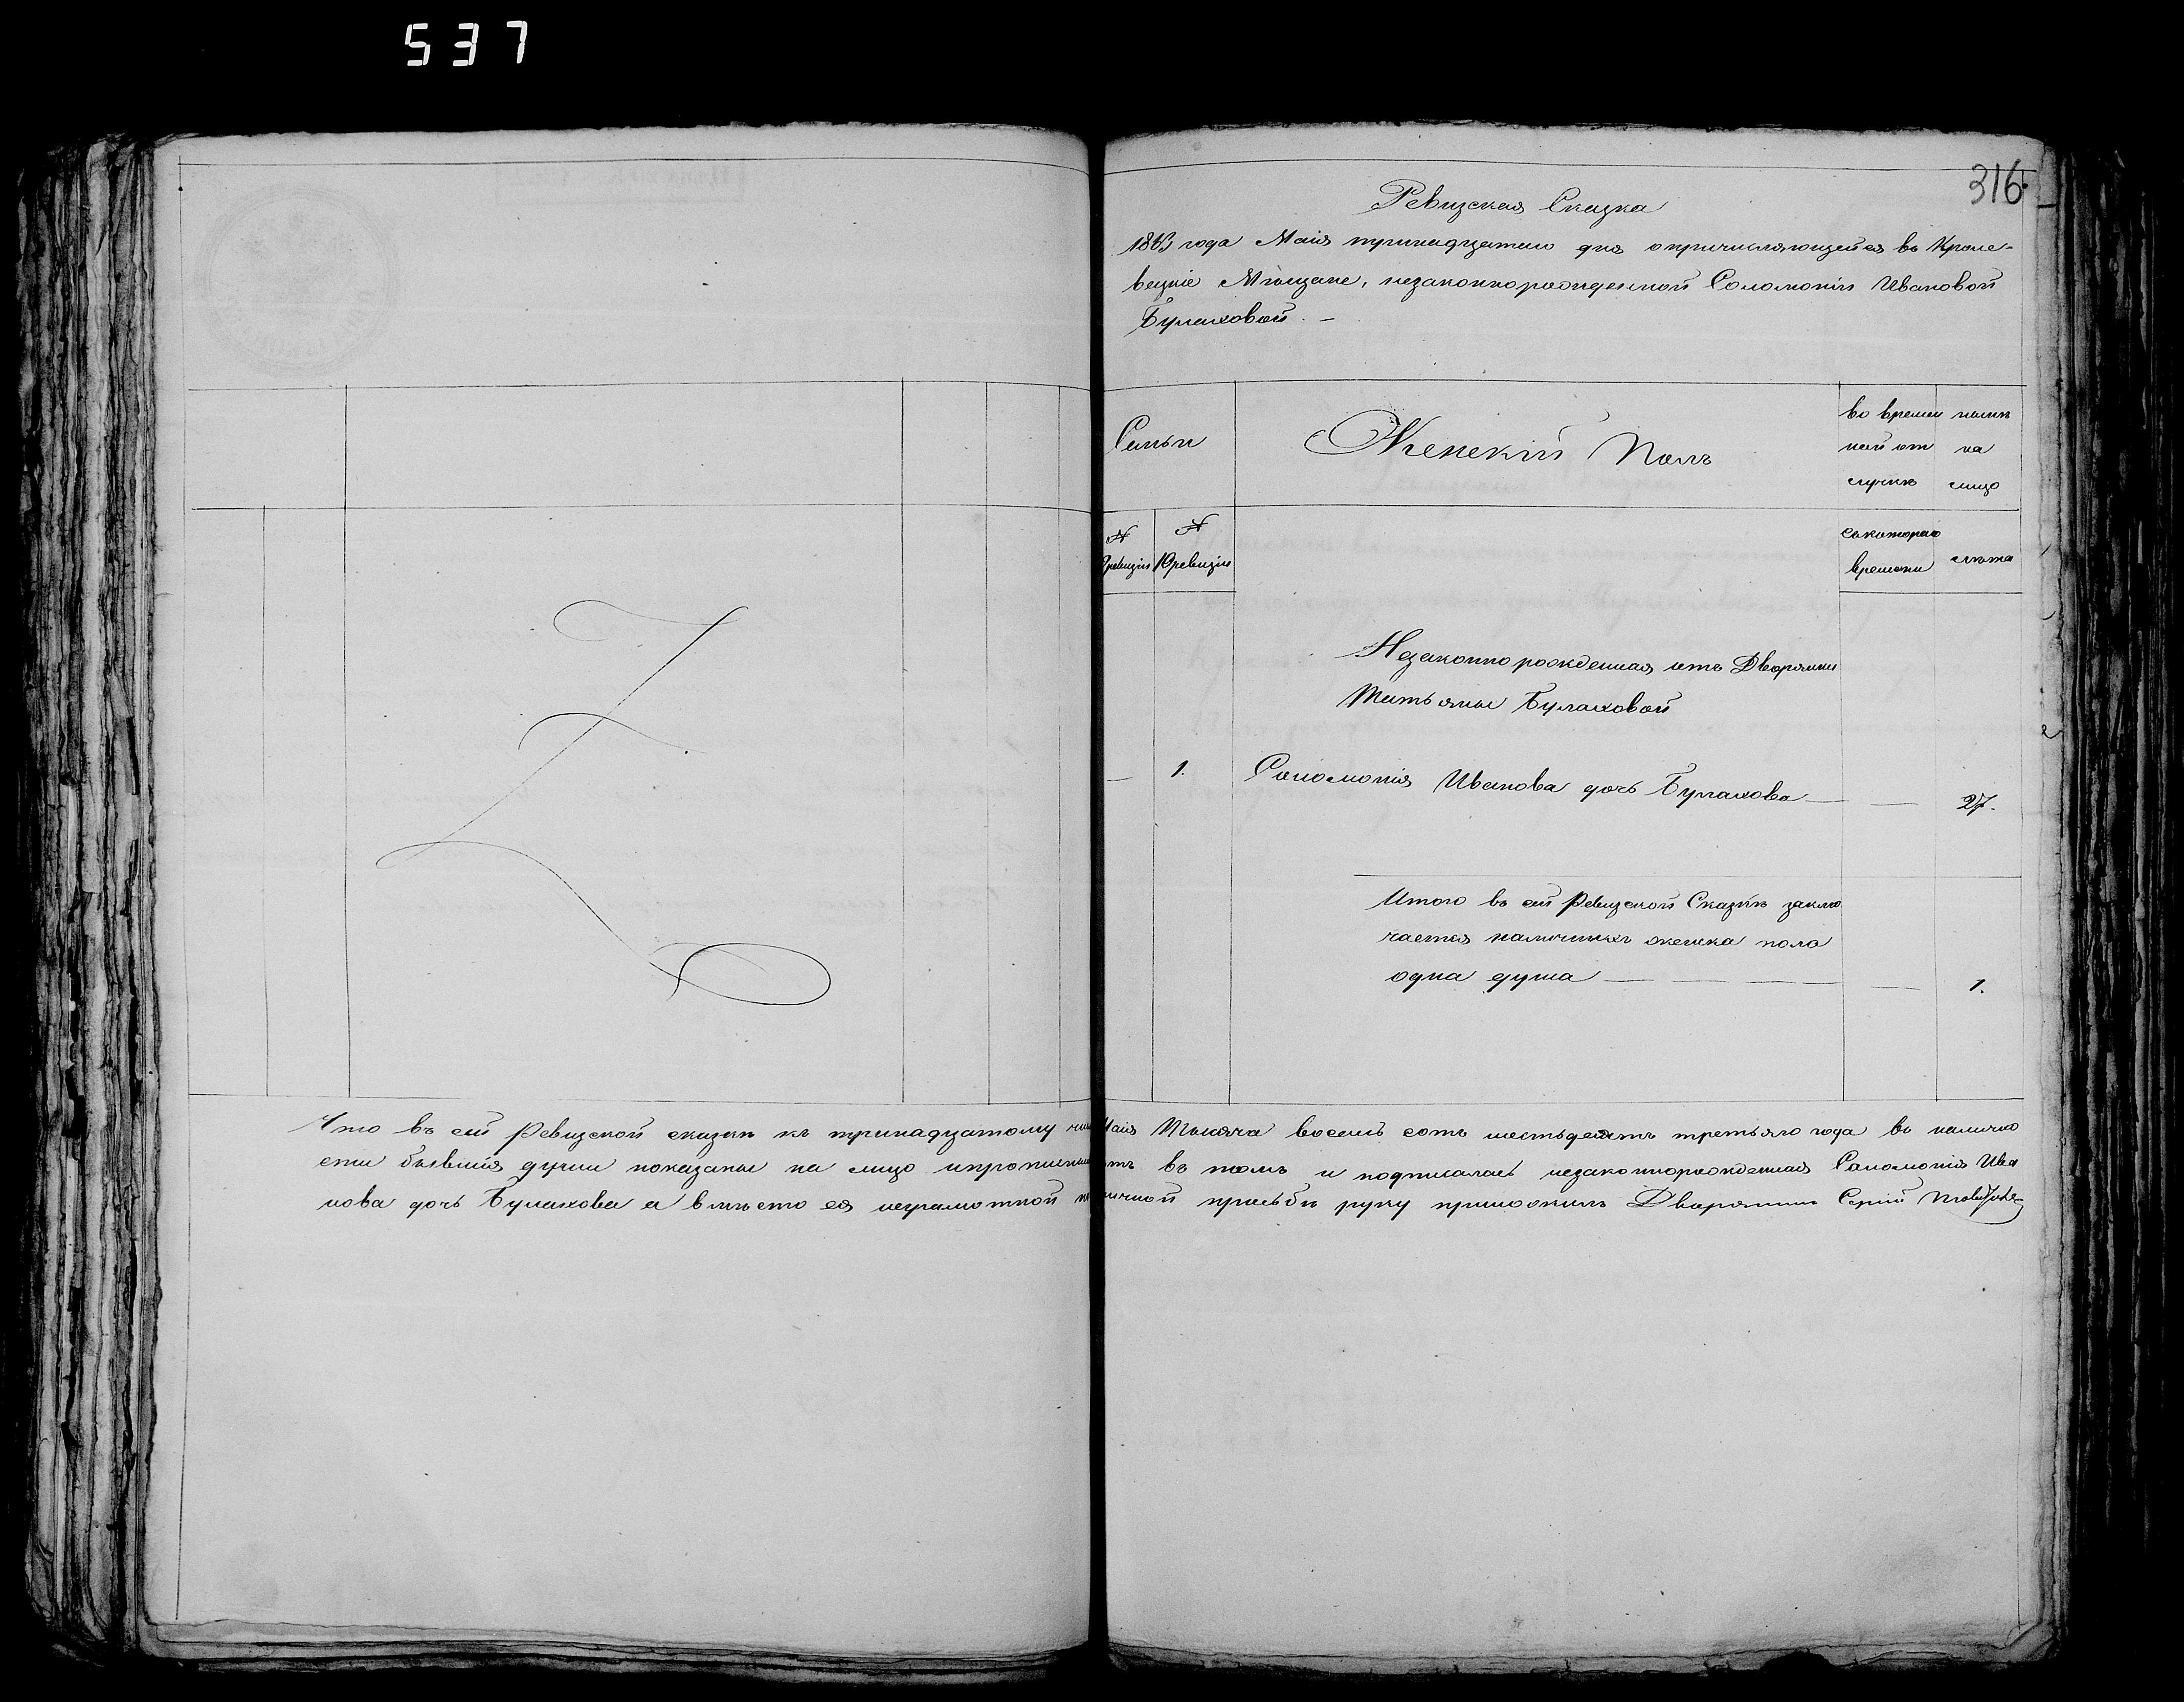 537
316
Ревизская Сказка
1863 года Маія тринадцатаго дня о причисляющейся въ Кроле-
вецкіе Мѣщане, незаконнорожденной Соломоніи Ивановой
Булаховой. —
Семьи
Женскій Полъ
во времен налич
ной от на
лучкѣ лицо
№ №
9 ревизіи 10 ревизіи
съкотораго
времени лѣта
Незаконно рожденная отъ Дворянки
Татьяны Булаховой
— 1. Соломонія Иванова дочь Булахова — — 27.
Итого въ сей Ревизской Сказкѣ заклю
чается наличныхъ женска пола
одна душа — — — — — 1.
Что въ сей Ревизской сказкѣ къ тринадцатому Маія Тысяча восемь сотъ шестьдесятъ третьяго года въ налично
сти бывшія души показаны на лицо въ томъ и подписалась незаконнорожденная Соломонія Ива
нова дочь Булахова а вмѣсто ея неграмотной личной прозьбѣ руку приложилъ Дворянинъ Сергій